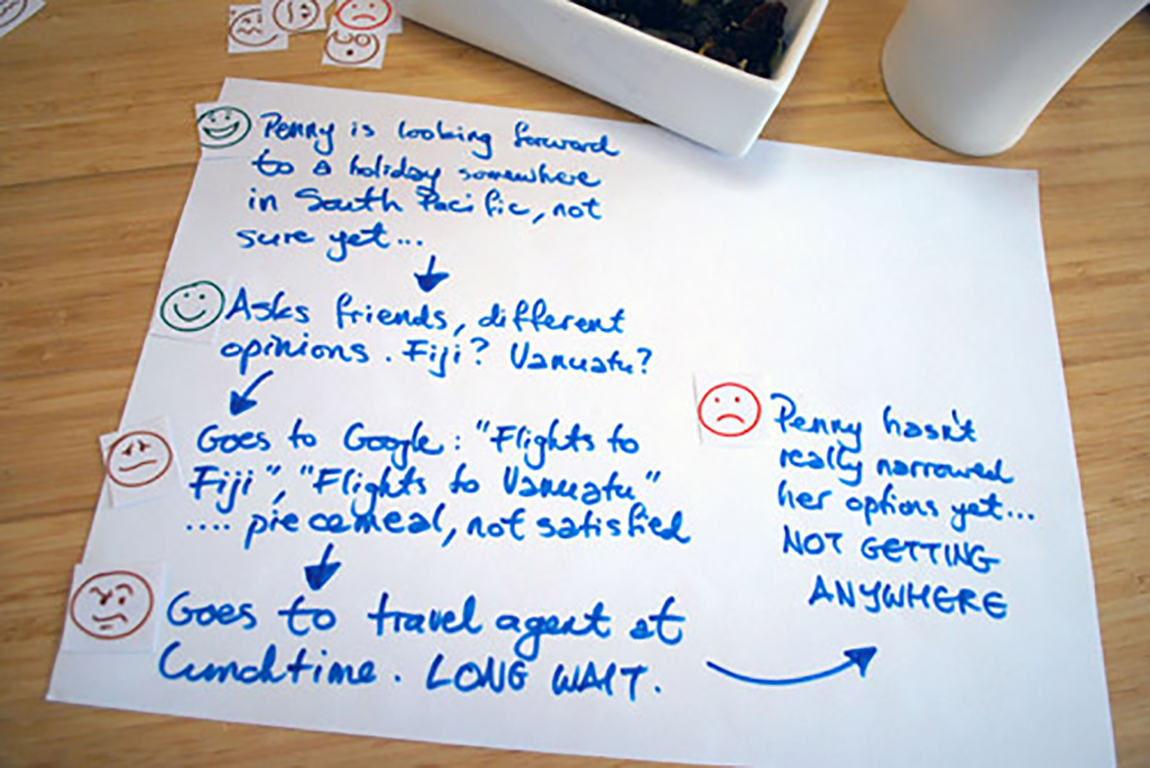 Penny is looking forward
to a holiday somewhere
in South Pacific, not
sure yet...
Asks friends, different
opinions. Fiji? Vanuatu?
Goes to Google: "Flights to
Fiji", "Flights to Vanuatu"
.... piecemeal, not satisfied
Goes to travel agent at
lunchtime. LONG WAIT.
Penny hasn't
really narrowed
her options yet...
NOT GETTING
ANYWHERE